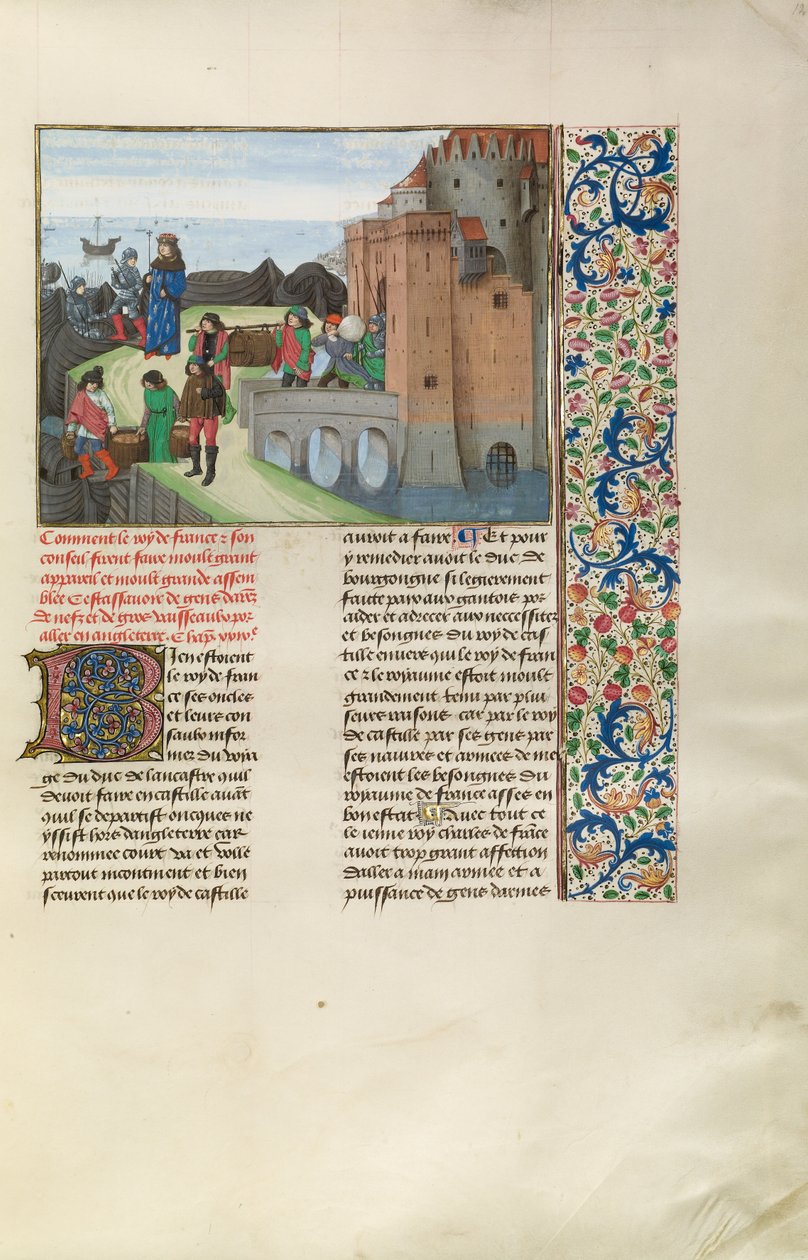 Comment le roy de france z son
conseil firent faire moult grant
appareil et moult grande assem
blee Cestassavoir de gens darmes
de nefz et de gros vaisseaulx por
aller en angleterre. Chap.
Bien estoient
le roy de fran
ce ses oncles
et leurs con
saulx infor
mez du voia
ge du duc de lancastre quil
devoit faire en castille avant
quil se departist oncques ne
yssist hors dangleterre car
renommee court va et volle
partout incontinent et bien
sceurent que le roy de castille
auroit a faire. Et pour
y remedier avoit le duc de
bourgongne si legierement
faitte paix aux gantois por
aidier et adrecer aux neccessitez
et besongnes du roy de cas
tille envers qui le roy de fran
ce z le royaume estoit moult
grandement tenu par plui
seurs raisons car par le roy
de castille par ses gens par
ses navires et armees de mer
estoient les besongnes du
royaume de france asses en
bon estat Avec tout ce
le jeune roy charles de france
avoit trop grant affection
daller a main armee et a
puissance de gens darmes